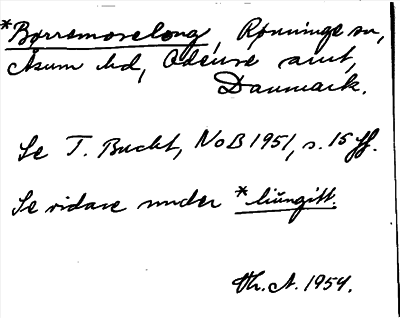 *Borremoselong, Rønninge sn,
Åsum hd, Odense amt,
Danmark.
Se T. Bucht, NoB 1951, s. 15 ff.
Se vidare under *liūngitt.
Th. A. 1954.